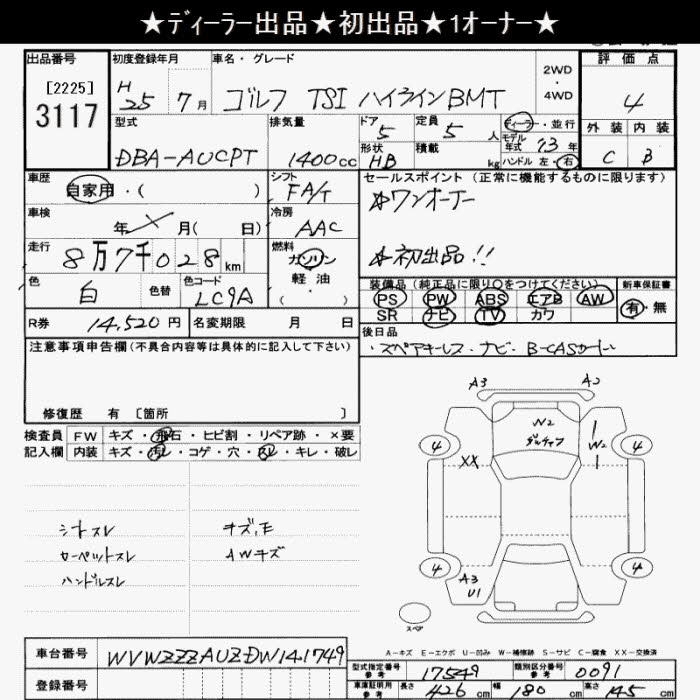 ★ディーラー出品★初出品★1オーナー★
出品番号 初度登録年月 車名・グレード 2WD・4WD 評価点
[2225] 3117 H25年7月 ゴルフ TSI ハイラインBMT 4
型式 排気量 ドア 定員 ディーラー・並行 外装 内装
DBA-AUCPT 1400cc 5 5人 モデル年式 13年 C B
形状 HB 積載 kg ハンドル 左・右
車歴 自家用・( ) シフト FA/T セールスポイント (正常に機能するものに限ります)
☆ワンオーナー
車検 年 月( 日) 冷房 AAC
☆初出品!!
走行 8万7千028km 燃料 ガソリン・軽油・( )
色 白 色替 色コード LC9A
装備品(純正品に限り○をつけてください) 新車保証書
PS PW ABS エアB AW 有・無
SR ナビ TV カワ
R券 14,520円 名変期限 月 日
後日品
・スペアキーレス・ナビ・B-CASカード
注意事項申告欄(不具合内容等は具体的に記入して下さい)
修復歴 有 〔箇所 〕
検査員 FW キズ・飛石・ヒビ割・リペア跡・×要
記入欄 内装 キズ・汚レ・コゲ・穴・スレ・キレ・破レ
シートスレ キズ、モ
カーペットスレ AWキズ
ハンドルスレ
A3 A2
W2
W2
4 XX 4
4 4
A3
U1
スペア
A-キズ E-エクボ U-凹み W-補修跡 S-サビ C-腐食 XX-交換済
車台番号 WVWZZZAUZDW141749
型式指定番号参考 17549 類別区分番号参考 0091
登録番号
車庫証明用参考 長さ 426cm 幅 180cm 高さ 145cm